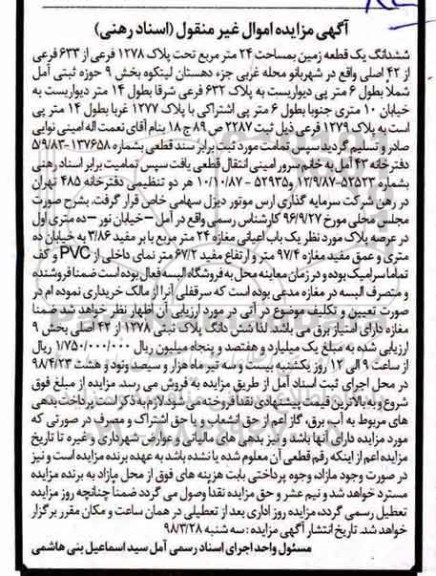 آگهی مزایده اموال غیر منقول (اسناد رهنی)
ششدانگ یک قطعه زمین بمساحت ۲۴ متر مربع تحت پلاک ۱۲۷۸ فرعی از ۶۳۳ فرعی
از ۴۲ اصلی واقع در شهربانو محله غربی جزء دهستان لیتکوه بخش ۹ حوزه ثبتی آمل
شملا بطول ۶ متر پی دیواریست به پلاک ۶۳۲ فرعی شرقا بطول ۱۴ متر دیواریست به
خیابان ۱۰ متری جنوبا بطول ۶ متر پی اشتراکی با پلاک ۱۲۷۷ غربا بطول ۱۴ متر پی
است به پلاک ۱۲۷۹ فرعی ذیل ثبت ۲۲۸۷ ص ۸۹ ج ۱۸ بنام آقای نعمت اله امینی نوایی
صادر و تسلیم گردید سپس تمامت مورد ثبت برابر سند قطعی بشماره ۱۳۷۶۵۸-۵/۹/۸۳
دفترخانه ۴۳ آمل به خانم سرور امینی انتقال قطعی یافت سپس تمامیت برابر اسناد رهنی
بشماره ۵۲۵۲۳-۱۲/۹/۸۷ و ۵۲۹۳۵ - ۱۰/۱۰/۸۷ هر دو تنظیمی دفترخانه ۴۸۵ تهران
در رهن شرکت سرمایه گذاری ارس موتور دیزل سهامی خاص قرار گرفت. بشرح صورت
مجلس محلی مورخ ۹۶/۹/۲۷ کارشناس رسمی واقع در آمل – خیابان نور – ده متری اول
در عرصه پلاک مورد نظر یک باب اعیانی مغازه ۲۴ متر مربع با بر مفید ۳/۸۶ به خیابان ده
متری و عمق مفید مغازه ۹۷/۴ متر و ارتفاع مفید ۶۷/۲ متر نمای داخلی از PVC و کف
تماما سرامیک بوده و در زمان معاینه محل به فروشگاه البسه فعال بوده است ضمنا فروشنده
و متصرف البسه در مغازه مدعی بوده است که سرقفلی آنرا از مالک خریداری نموده ام در
صورت تعیین و تکلیف موضوع در آتی در مورد ارزیابی آن اظهار نظر خواهد شد ضمنا
مغازه دارای امتیاز برق می باشد. لذا شش دانگ پلاک ثبتی ۱۲۷۸ از ۴۲ اصلی بخش ۹
ارزیابی شده به مبلغ یک میلیارد و هفتصد و پنجاه میلیون ریال ۱/۷۵۰/۰۰۰/۰۰۰ ریال
از ساعت ۹ الی ۱۲ روز یکشنبه بیست و سه تیر ماه هزار و سیصد و نود و هشت ۹۸/۴/۲۳
در محل اجرای ثبت اسناد آمل از طریق مزایده به فروش می رسد. مزایده از مبلغ فوق
شروع و به بالاترین قیمت پیشنهادی نقدا فروخته می شود. لازم به ذکر است پرداخت بدهی
های مربوط به آب، برق، گاز اعم از حق انشعاب و یا حق اشتراک و مصرف در صورتی که
مورد مزایده دارای آنها باشد و نیز بدهی های مالیاتی و عوارض شهرداری و غیره تا تاریخ
مزایده اعم از اینکه رقم قطعی آن معلوم شده یا نشده باشد به عهده برنده مزایده است و نیز
در صورت وجود مازاد، وجوه پرداختی بابت هزینه های فوق از محل مازاد به برنده مزایده
مسترد خواهد شد و نیم عشر و حق مزایده نقدا وصول می گردد ضمناً چنانچه روز مزایده
تعطیل رسمی گردد، مزایده روز اداری بعد از تعطیلی در همان ساعت و مکان مقرر برگزار
خواهد شد. تاریخ انتشار آگهی مزایده : سه شنبه ۹۸/۳/۲۸
مسئول واحد اجرای اسناد رسمی آمل سید اسماعیل بنی هاشمی